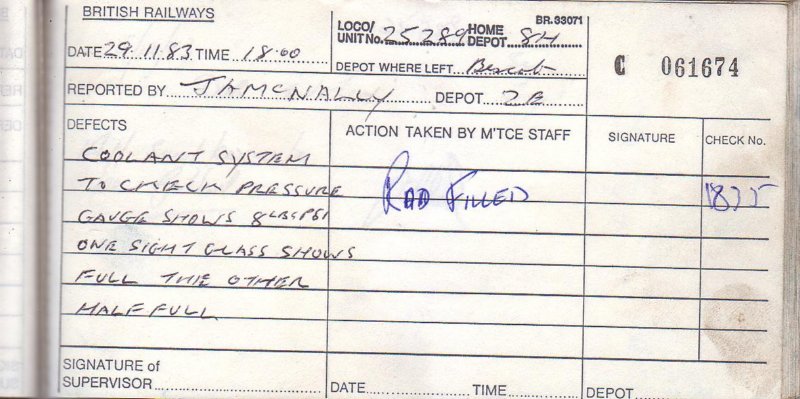 BRITISH RAILWAYS
BR.33071
LOCO/ UNIT No. 25289 HOME DEPOT 8H
DATE 29.11.83 TIME 18.00
DEPOT WHERE LEFT Bescot
C 061674
REPORTED BY J A MCNALLY DEPOT 2E
DEFECTS
ACTION TAKEN BY M'TCE STAFF
SIGNATURE
CHECK No.
COOLANT SYSTEM
TO CHECK PRESSURE
RAD FILLED
GAUGE SHOWS 8 LBS PSI
ONE SIGHT GLASS SHOWS
FULL THE OTHER
HALF FULL
SIGNATURE of
SUPERVISOR
DATE
TIME
DEPOT